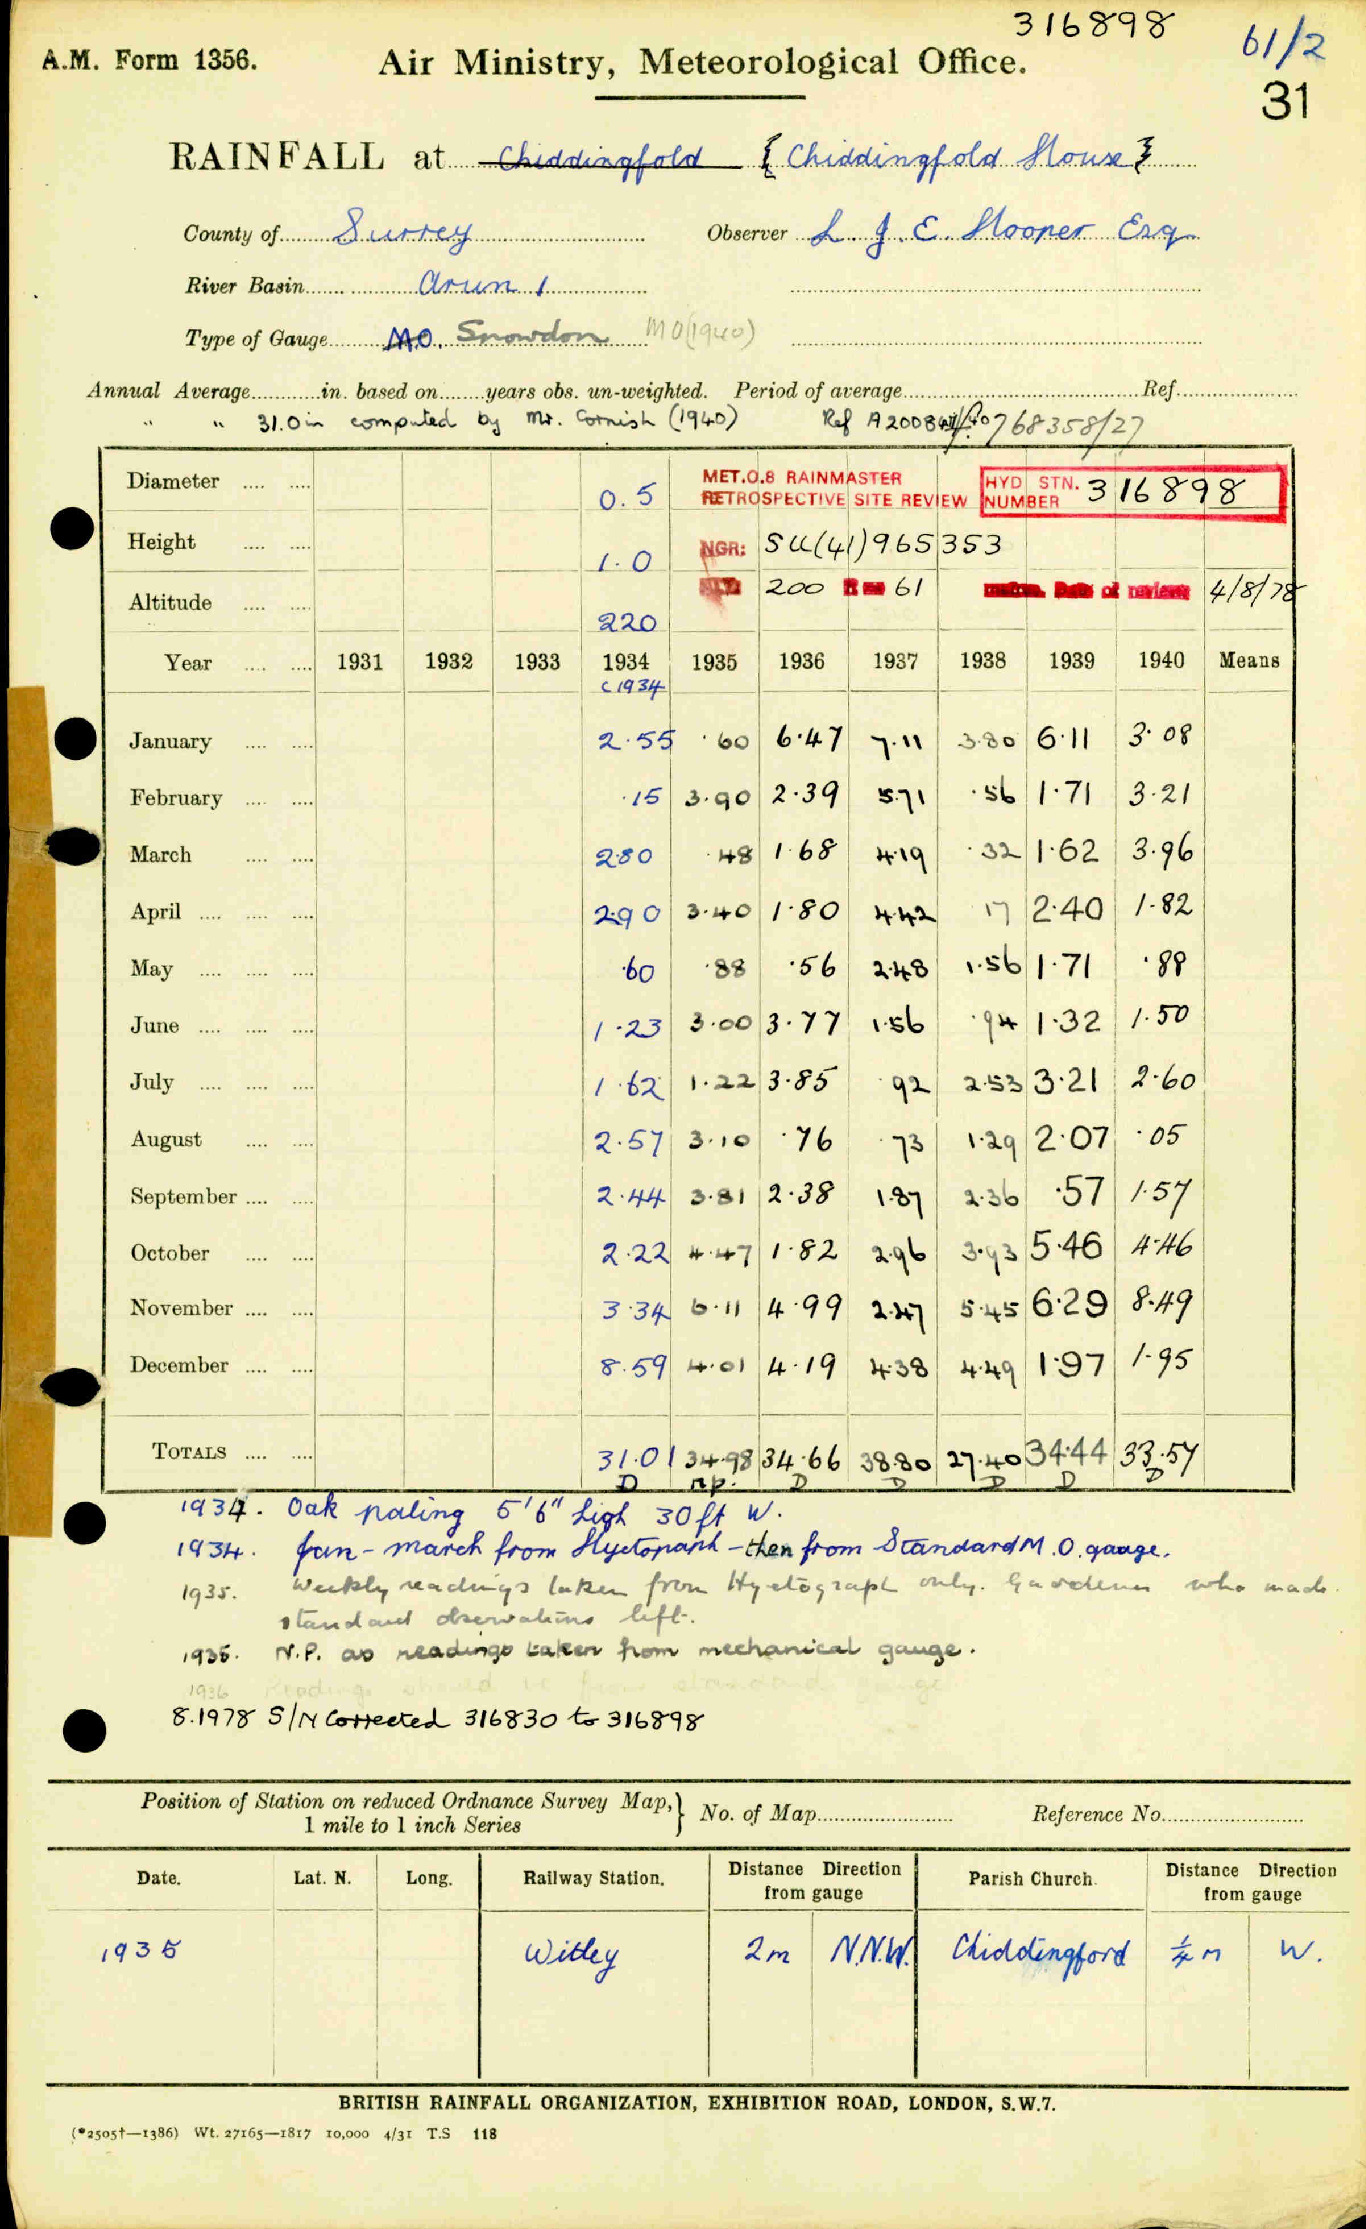 316898
61/2
A.M. Form 1356. Air Ministry, Meteorological Office.
31
RAINFALL at Chiddingfold { Chiddingfold House }
County of Surrey Observer L. J. E. Hooper Esq
River Basin Arun 1
Type of Gauge M.O. Snowdon MO(1940)
Annual Average in. based on years obs. un-weighted. Period of average Ref.
" " 31.0in computed by Mr. Cornish (1940) Ref 768358/27
Diameter 0.5 MET.O.8 RAINMASTER RETROSPECTIVE SITE REVIEW HYD STN. NUMBER 316898
Height 1.0 NGR: SU(41)965353
Altitude 220 200 61 Date of review 4/8/78
Year 1931 1932 1933 1934 1935 1936 1937 1938 1939 1940 Means
c1934
January 2.55 .60 6.47 7.11 3.80 6.11 3.08
February .15 3.90 2.39 5.71 .56 1.71 3.21
March 2.80 .48 1.68 4.19 .32 1.62 3.96
April 2.90 3.40 1.80 4.42 17 2.40 1.82
May .60 .88 .56 2.48 1.56 1.71 .88
June 1.23 3.00 3.77 1.56 .94 1.32 1.50
July 1.62 1.22 3.85 .92 2.53 3.21 2.60
August 2.57 3.10 .76 .73 1.29 2.07 .05
September 2.44 3.81 2.38 1.87 2.36 .57 1.57
October 2.22 4.47 1.82 2.96 3.93 5.46 4.46
November 3.34 6.11 4.99 2.47 5.45 6.29 8.49
December 8.59 4.01 4.19 4.38 4.49 1.97 1.95
TOTALS 31.01 34.98 34.66 38.80 27.40 34.44 33.57
D n.p. D D D D D
1934. Oak paling 5'6" high 30 ft W.
1934. Jan - march from Hyetograph - then from Standard M.O. gauge.
1935. Weekly readings taken from Hyetograph only. Gardener who made
standard observations left.
1935. N.P. as readings taken from mechanical gauge.
1936 Readings should be from standard gauge
8.1978 S/N Corrected 316830 to 316898
Position of Station on reduced Ordnance Survey Map, } No. of Map Reference No.
1 mile to 1 inch Series
Date. Lat. N. Long. Railway Station. Distance Direction from gauge Parish Church. Distance Direction from gauge
1935 Witley 2m N.N.W. Chiddingford 1/4 m W.
BRITISH RAINFALL ORGANIZATION, EXHIBITION ROAD, LONDON, S.W.7.
(*2505†—1386) Wt. 27165—1817 10,000 4/31 T.S 118